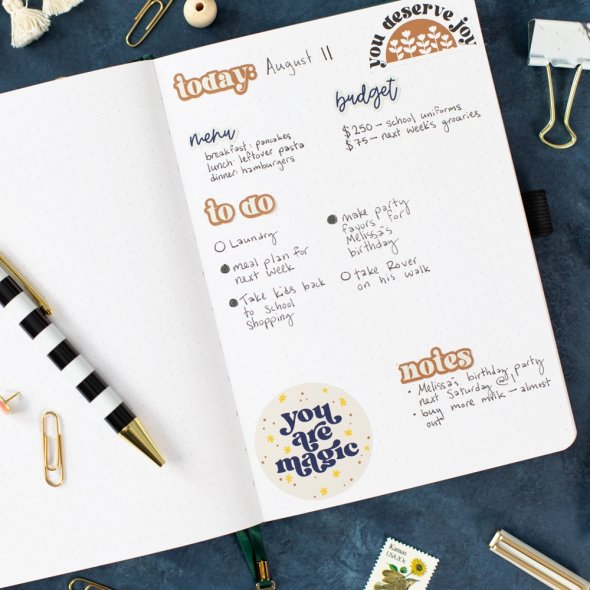 you deserve joy
today: August 11
menu
breakfast: pancakes
lunch: leftover pasta
dinner: hamburgers
budget
$250 — school uniforms
$75 — next week's groceries
to do
Laundry
meal plan for
next week
Take kids back
to school
shopping
make party
favors for
Melissa's
birthday
take Rover
on his walk
notes
• Melissa's birthday party
next Saturday @ 1
• buy more milk — almost
out
you
are
magic
Kansas
USA